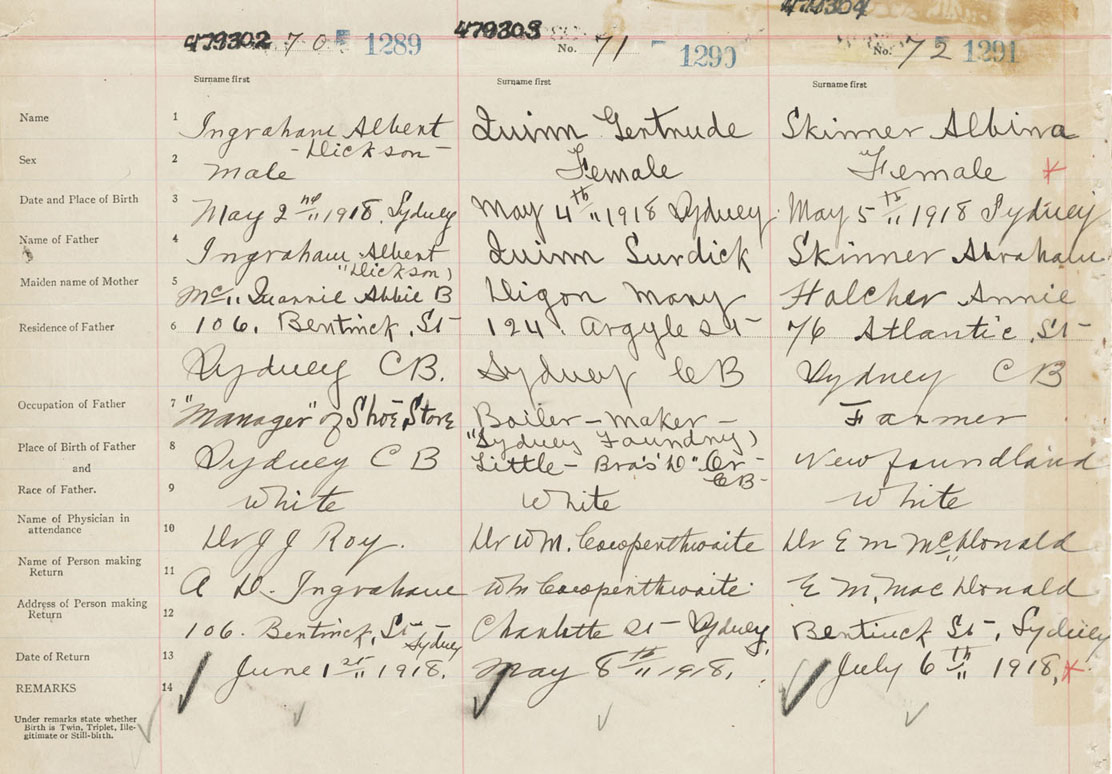 479302 70 1289
479303 No. 71 1290
479304 No. 72 1291
Surname first Surname first Surname first
Name 1 Ingraham Albert Quinn Gertrude Skinner Albina
-Dickson-
Sex 2 Male Female Female
Date and Place of Birth 3 May 2nd 1918. Sydney May 4th 1918 Sydney. May 5th 1918 Sydney
Name of Father 4 Ingraham Albert Quinn Surdick Skinner Abraham
"Dickson)
Maiden name of Mother 5 Mc Quannie Abbie B Digon Mary Halcher Annie
Residence of Father 6 106. Bentinck. St- 124. Argyle St- 76 Atlantic. St-
Sydney C B. Sydney C B Sydney C B
Occupation of Father 7 "Manager" of Shoe Store Boiler-maker- Farmer
"Sydney Foundry)
Place of Birth of Father 8 Sydney C B Little- Bras' D" Or- Newfoundland
C B-
and
Race of Father. 9 White White White
Name of Physician in
attendance 10 Dr J J Roy. Dr W M. Cowpenthwaite Dr E M McDonald
Name of Person making
Return 11 A D. Ingraham Wm Cowpenthwaite E M. MacDonald
Address of Person making
Return 12 106. Bentinck, St- Sydney Charlotte St- Sydney, Bentinck St-, Sydney
Date of Return 13 June 1st 1918. May 8th 1918. July 6th 1918.
REMARKS 14
Under remarks state whether
Birth is Twin, Triplet, Ille-
gitimate or Still-birth.